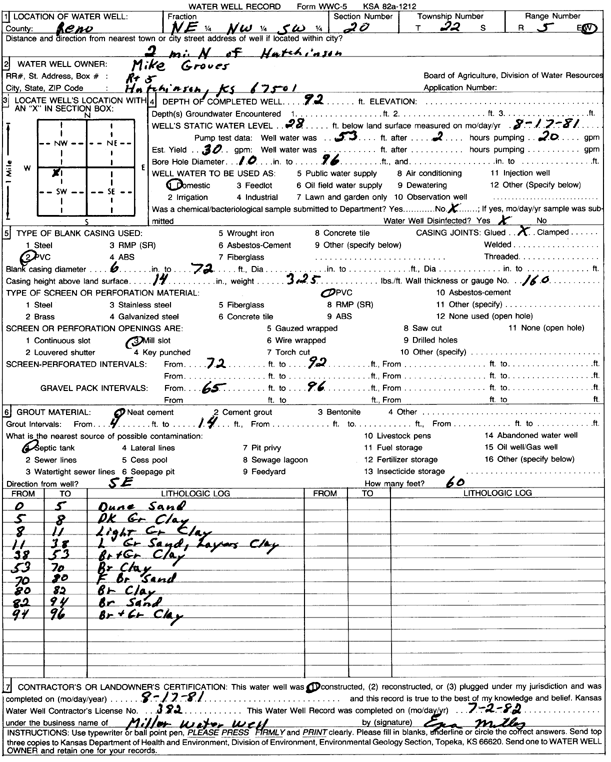 WATER WELL RECORD Form WWC-5 KSA 82a-1212
1 LOCATION OF WATER WELL: Fraction Section Number Township Number Range Number
County: Reno NE ¼ NW ¼ SW ¼ 20 T 22 S R 5 E/W
Distance and direction from nearest town or city street address of well if located within city?
2 mi N of Hutchinson
2 WATER WELL OWNER: Mike Groves
RR#, St. Address, Box # : Rt 5 Board of Agriculture, Division of Water Resources
City, State, ZIP Code : Hutchinson, KS 67501 Application Number:
3 LOCATE WELL'S LOCATION WITH AN "X" IN SECTION BOX:
N
NW NE
W X E
SW SE
S
1 Mile
4 DEPTH OF COMPLETED WELL 92 ft. ELEVATION:
Depth(s) Groundwater Encountered 1. ft. 2. ft. 3. ft.
WELL'S STATIC WATER LEVEL 28 ft. below land surface measured on mo/day/yr 8-17-81
Pump test data: Well water was 53 ft. after 2 hours pumping 20 gpm
Est. Yield 30 gpm: Well water was ft. after hours pumping gpm
Bore Hole Diameter 10 in. to 96 ft., and in. to ft.
WELL WATER TO BE USED AS: 5 Public water supply 8 Air conditioning 11 Injection well
1 Domestic 3 Feedlot 6 Oil field water supply 9 Dewatering 12 Other (Specify below)
2 Irrigation 4 Industrial 7 Lawn and garden only 10 Observation well
Was a chemical/bacteriological sample submitted to Department? Yes No X ; If yes, mo/day/yr sample was submitted Water Well Disinfected? Yes X No
5 TYPE OF BLANK CASING USED: 5 Wrought iron 8 Concrete tile CASING JOINTS: Glued X Clamped
1 Steel 3 RMP (SR) 6 Asbestos-Cement 9 Other (specify below) Welded
2 PVC 4 ABS 7 Fiberglass Threaded
Blank casing diameter 6 in. to 72 ft., Dia in. to ft., Dia in. to ft.
Casing height above land surface 14 in., weight 3.25 lbs./ft. Wall thickness or gauge No. 160
TYPE OF SCREEN OR PERFORATION MATERIAL: 7 PVC 10 Asbestos-cement
1 Steel 3 Stainless steel 5 Fiberglass 8 RMP (SR) 11 Other (specify)
2 Brass 4 Galvanized steel 6 Concrete tile 9 ABS 12 None used (open hole)
SCREEN OR PERFORATION OPENINGS ARE: 5 Gauzed wrapped 8 Saw cut 11 None (open hole)
1 Continuous slot 3 Mill slot 6 Wire wrapped 9 Drilled holes
2 Louvered shutter 4 Key punched 7 Torch cut 10 Other (specify)
SCREEN-PERFORATED INTERVALS: From 72 ft. to 92 ft., From ft. to ft.
From ft. to ft., From ft. to ft.
GRAVEL PACK INTERVALS: From 65 ft. to 96 ft., From ft. to ft.
From ft. to ft., From ft. to ft.
6 GROUT MATERIAL: 1 Neat cement 2 Cement grout 3 Bentonite 4 Other
Grout Intervals: From 4 ft. to 14 ft., From ft. to ft., From ft. to ft.
What is the nearest source of possible contamination: 10 Livestock pens 14 Abandoned water well
1 Septic tank 4 Lateral lines 7 Pit privy 11 Fuel storage 15 Oil well/Gas well
2 Sewer lines 5 Cess pool 8 Sewage lagoon 12 Fertilizer storage 16 Other (specify below)
3 Watertight sewer lines 6 Seepage pit 9 Feedyard 13 Insecticide storage
Direction from well? SE How many feet? 60
FROM TO LITHOLOGIC LOG FROM TO LITHOLOGIC LOG
0 5 Dune Sand
5 8 DK Gr Clay
8 11 Light Gr Clay
11 38 L Gr Sand, Layers Clay
38 53 Br+Gr Clay
53 70 Br Clay
70 80 F Br Sand
80 82 Br Clay
82 94 Br Sand
94 96 Br + Gr Clay
7 CONTRACTOR'S OR LANDOWNER'S CERTIFICATION: This water well was (1) constructed, (2) reconstructed, or (3) plugged under my jurisdiction and was
completed on (mo/day/year) 8-17-81 and this record is true to the best of my knowledge and belief. Kansas
Water Well Contractor's License No. 382 This Water Well Record was completed on (mo/day/yr) 7-2-82
under the business name of Miller Water Well by (signature)
INSTRUCTIONS: Use typewriter or ball point pen, PLEASE PRESS FIRMLY and PRINT clearly. Please fill in blanks, underline or circle the correct answers. Send top
three copies to Kansas Department of Health and Environment, Division of Environment, Environmental Geology Section, Topeka, KS 66620. Send one to WATER WELL
OWNER and retain one for your records.